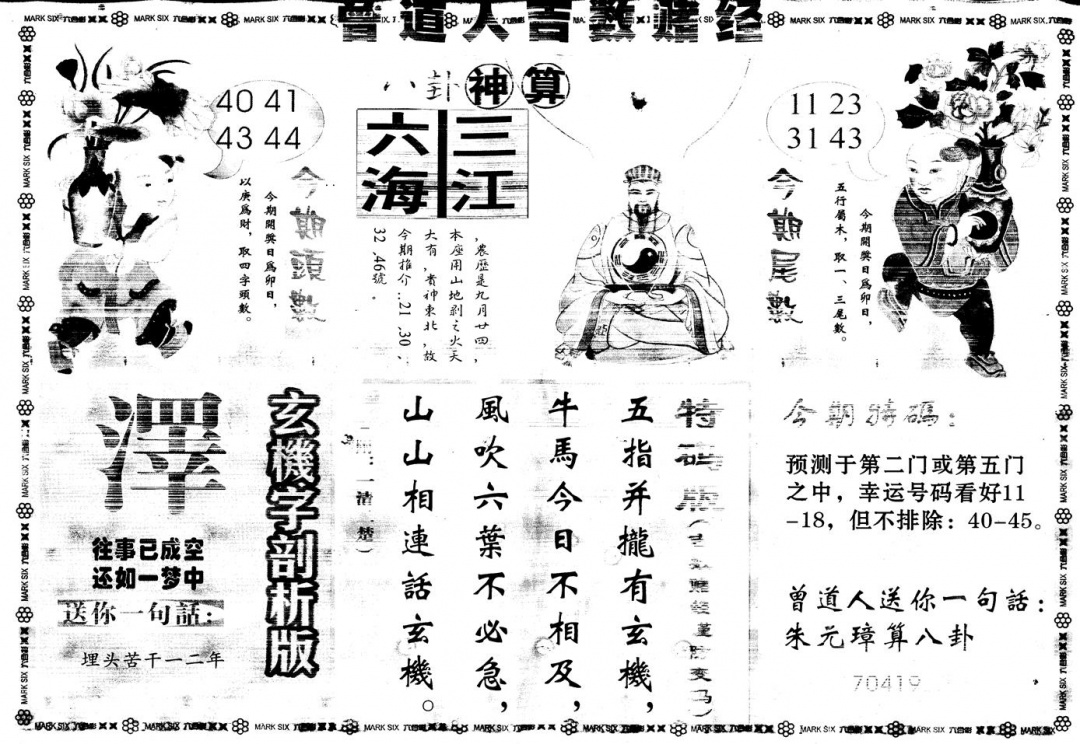 曾道人吉数赌经
八卦神算
40 41
43 44
今期頭數
今期開獎日爲卯日，
以庚爲財，取四字頭數。
三江
六海
，農歷是九月廿四，
本座用山地剥之火天
大有，看神東北，故
今期推介：21、30、
32、46號。
11 23
31 43
今期尾數
今期開獎日爲卯日，
五行屬木，取一、三尾數。
澤
往事已成空
还如一梦中
送你一句話：
埋头苦干一二年
玄機字剖析版
特码版
五指并攏有玄機，
牛馬今日不相及，
風吹六葉不必急，
山山相連話玄機。
一清
楚）
今期特碼：
预测于第二门或第五门
之中，幸运号码看好11
-18，但不排除：40-45。
曾道人送你一句話：
朱元璋算八卦
70419
MARK SIX